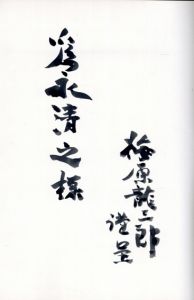 為永清之様
梅原龍三郎
謹呈